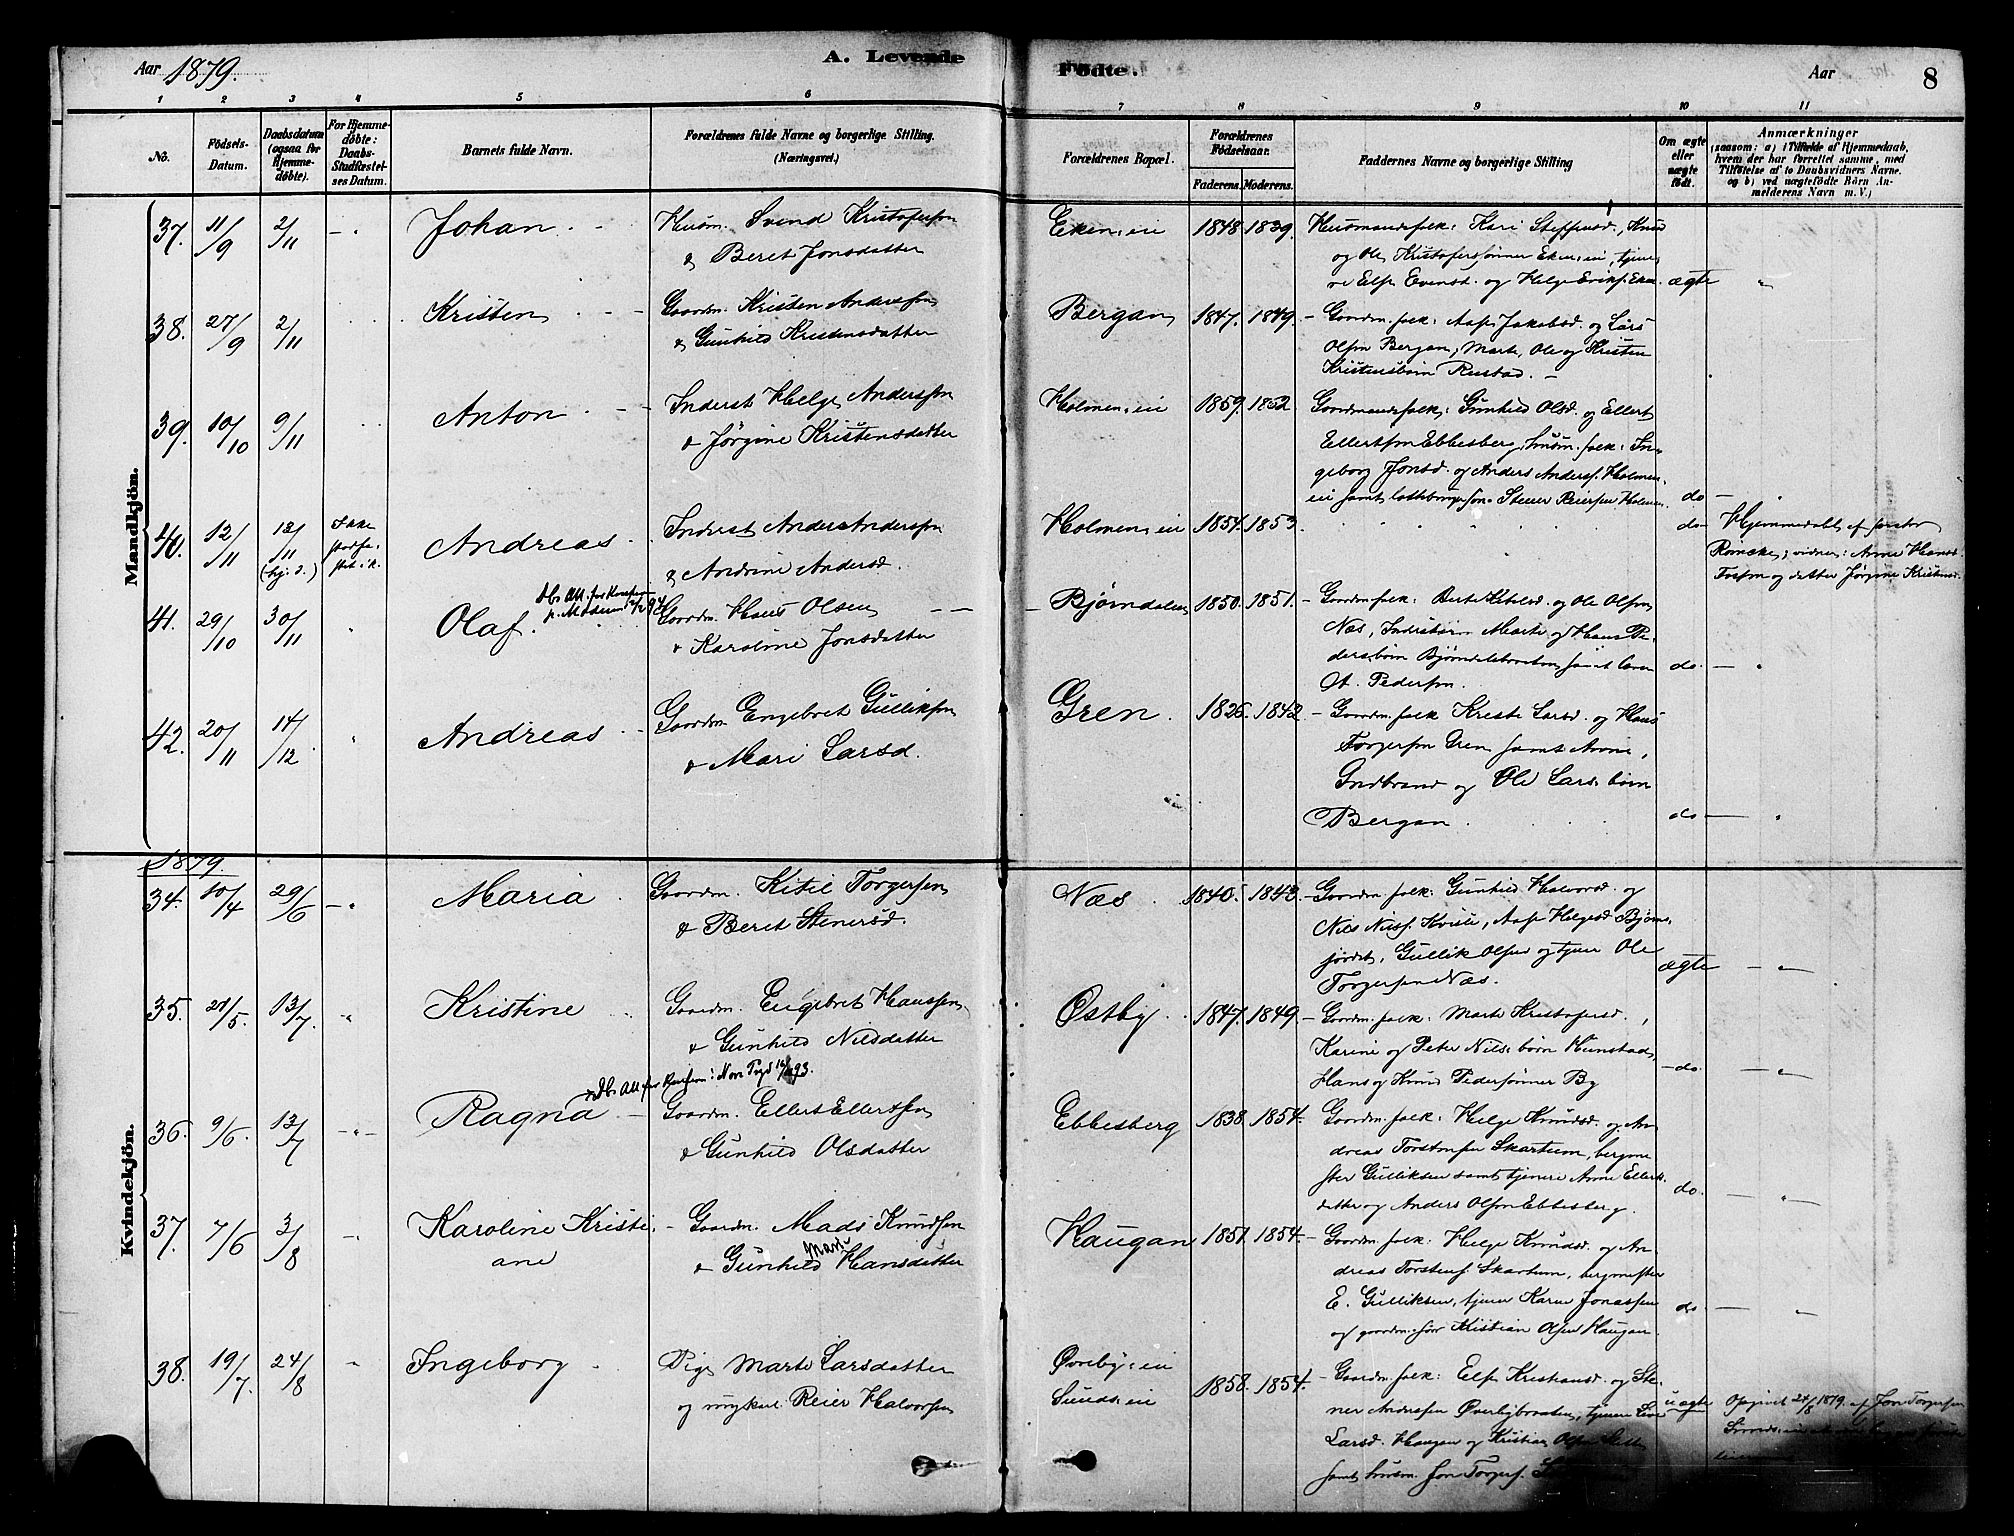 Aar 1879.
A. Levende
Fødte.
Aar
8
1 2 3 4 5 6 7 8 9 10 11
No.
Fødsels-Datum.
Daabsdatum (ogsaa for Hjemmedøbte).
For Hjemmedøbte: Daabs-Stadfæstelses Datum.
Barnets fulde Navn.
Forældrenes fulde Navne og borgerlige Stilling.
(Næringsvei.)
Forældrenes Bopæl.
Forældrenes Fødselsaar.
Faderens. Moderens.
Faddernes Navne og borgerlige Stilling
Om ægte eller uægte født.
Anmærkninger
(saasom: a) i Tilfælde af Hjemmedaab, hvem der har forrettet samme, med Tilføielse af to Daabsvidners Navne. og b) ved uægtefødte Børn Anmelderens Navn m. V.)
Mandkjön.
37. 11/9 2/11 Johan Husm. Svend Kristofersen
& Beret Jonsdatter
Eken, ei 1848. 1839. Husmandsfolk: Kari Steffensd., Knud
og Ole Kristofersønner Eken, ei, tjene-
re Evensd. og Helge Eriks. Eken ægte
38. 27/9 2/11 Kristen Gaardm. Kristen Anderssen
& Gunhild Kristensdatter
Bergan 1847. 1849. Gaardm. folk: Jakobsd. og Lars
Olsen Bergan, Marte, Ole og Kristen
Kristensbørn Rustad.
39. 10/10 9/11 Anton Inderst Helge Anderssen
& Jørgine Kristensdatter
Holmen, ei 1859. 1852 Gaardmandsfolk: Gunhild Olsd. og Ellert
Ellertsen Ebbesberg, husm. folk: In-
geborg Jonsd. og Anders Anders. Holmen-
ei samt Stener Reiersen Holmen. do
40. 12/11 12/11 (hj. d.) Ikke stadfæstet i k. Andreas Inderst Anders Anderssen
& Andrine Andersd.
Holmen, ei 1854. 1853. do Hjemmedøbt af pastor
vidner: Anne Hansd.
og datter Jørgine Kristensd.
41. 29/10 30/11 Olaf. Gaardm. Hans Olsen
& Karoline Jonsdatter
Bjørndalen 1850. 1851. Gaardm. folk: Berte og Ole Olsen
Næs, Marte og Hans Pe-
dersbørn samt
Pedersen. do
42. 20/11 14/12 Andreas Gaardm. Engebret Gulliksen
& Mari Larsd.
Gren. 1826. 1842 Gaardm. folk Larsd. og Hans
Torgersen Gren samt Anne,
Gudbrand og Ole Larsbørn
Bergan. do
Kvindekjön.
1879.
34. 10/4 29/6 Maria Gaardm. Kitil Torgersen
& Beret Stenersd.
Næs 1840. 1843. Gaardm. folk: Gunhild Halvorsd. og
Nils Niels. Kvisle, Helgesd. Bjørn-
jordet, Gullik Olsen og tjener Ole
Torgersen Næs. ægte
35. 21/5. 13/7. Kristine Gaardm. Engebret Hanssen
& Gunhild Nilsdatter
Østby. 1847. 1849. Gaardm. folk: Marte Kristofersd.,
Karine og Peter Nils: børn Hunstad,
Hans og Knud Pedersønner By do
36. 9/6. 13/7 Ragna Gaardm. Ellert Ellertsen
& Gunhild Olsdatter
Ebbesberg 1838. 1854. Gaardm. folk: Helge Knudsd. og An-
dreas Torstensen Skartum, bergme-
ster Gulliksen samt tjenere Anne Ellerts-
datter og Anders Olsen Ebbesberg. do.
37. 7/6 3/8 Karoline Kristi-
ane Gaardm. Mads Knudsen
& Gunhild Mari Hansdatter
Haugan 1851. 1854. Gaardm. folk: Helge Knudsd. og An-
dreas Torstens. Skartum, bergmester
E. Gulliksen, tjener Karen Jonassen
og gaardm. søn Kristian Olsen Haugan. do
38. 19/7. 24/8 Ingeborg Pige Marte Larsdatter
og ungkarl Reier Halvorsen
Øvreby, ei
Sunds, ei
1858. 1854. Gaardm. folk: Kristiansd. og Ste-
ner Andersen Øverbybraaten, tjenere
Larsd. Haugan og Kristian Olsen
samt husm. Jon Torgers. uægte Opgivet 24/8 1879 af Jon Torgersen